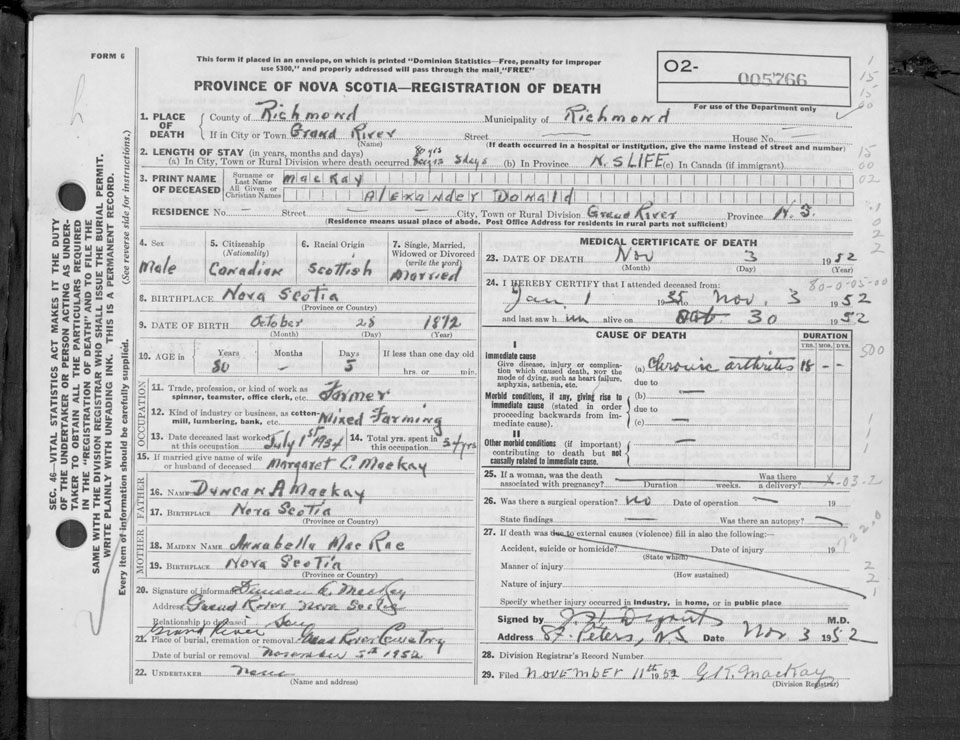 FORM 6
This form if placed in an envelope, on which is printed "Dominion Statistics—Free, penalty for improper
use $300," and properly addressed will pass through the mail "FREE"
PROVINCE OF NOVA SCOTIA—REGISTRATION OF DEATH
O2- 005766
For use of the Department only
1. PLACE OF DEATH
County of Richmond Municipality of Richmond
If in City or Town Grand River Street House No.
(Name) (If death occurred in a hospital or institution, give the name instead of street and number)
2. LENGTH OF STAY (in years, months and days) 80 yrs
(a) In City, Town or Rural Division where death occurred 5 days (b) In Province N.S LIFE (c) In Canada (if immigrant)
3. PRINT NAME OF DECEASED
Surname or Last Name MacKay
All Given or Christian Names Alexander Donald
RESIDENCE No. — Street — City, Town or Rural Division Grand River Province N. S.
(Residence means usual place of abode. Post Office Address for residents in rural parts not sufficient)
4. Sex 5. Citizenship 6. Racial Origin 7. Single, Married,
(Nationality) Widowed or Divorced
(write the word)
Male Canadian Scottish Married
8. BIRTHPLACE Nova Scotia
(Province or Country)
9. DATE OF BIRTH October 28 1872
(Month) (Day) (Year)
10. AGE in Years Months Days If less than one day old
80 — 5 hrs. or min.
OCCUPATION
11. Trade, profession, or kind of work as
spinner, teamster, office clerk, etc. Farmer
12. Kind of industry or business, as cotton-
mill, lumbering, bank, etc. Mixed Farming
13. Date deceased last worked at this occupation July 1st 1934 14. Total yrs. spent in this occupation 54 yrs
15. If married give name of wife
or husband of deceased Margaret C. Mackay
FATHER
16. NAME Duncan A Mackay
17. BIRTHPLACE Nova Scotia
(Province or Country)
MOTHER
18. MAIDEN NAME Annabella MacRae
19. BIRTHPLACE Nova Scotia
(Province or Country)
20. Signature of informant Duncan A. Mackay
Address Grand River Nova Scotia
Relationship to deceased Son
Grand River
21. Place of burial, cremation or removal Grand River
Date of burial or removal November 5th 1952
22. UNDERTAKER None
(Name and address)
MEDICAL CERTIFICATE OF DEATH
23. DATE OF DEATH Nov 3 1952
(Month) (Day) (Year)
24. I HEREBY CERTIFY that I attended deceased from: 80-0-05-00
Jan. 1 1935 to Nov. 3 1952
and last saw h im alive on 30 1952
CAUSE OF DEATH DURATION
YRS. MOS. DYS.
I
Immediate cause (a) Chronic arthritis 18 - -
Give disease, injury or complica-
tion which caused death, not the
mode of dying, such as heart failure,
asphyxia, asthenia, etc.
due to
Morbid conditions, if any, giving rise to
immediate cause (stated in order
proceeding backwards from im-
mediate cause).
(b) —
due to
(c) —
II
Other morbid conditions (if important)
contributing to death but not
causally related to immediate cause.
25. If a woman, was the death Was there
associated with pregnancy? Duration weeks. a delivery?
26. Was there a surgical operation? No Date of operation — 19
State findings — Was there an autopsy?
27. If death was due to external causes (violence) fill in also the following:—
Accident, suicide or homicide? Date of injury 19
(State which)
Manner of injury
(How sustained)
Nature of injury
Specify whether injury occurred in industry, in home, or in public place
Signed by M.D.
Address St. Peters, NS Date Nov 3 1952
28. Division Registrar's Record Number
29. Filed November 11th 1952 MacKay
(Division Registrar)
SEC. 46—VITAL STATISTICS ACT MAKES IT THE DUTY
OF THE UNDERTAKER OR PERSON ACTING AS UNDER-
TAKER TO OBTAIN ALL THE PARTICULARS REQUIRED
IN THE "REGISTRATION OF DEATH" AND TO FILE THE
SAME WITH THE DIVISION REGISTRAR WHO SHALL ISSUE THE BURIAL PERMIT.
WRITE PLAINLY WITH UNFADING INK. THIS IS A PERMANENT RECORD.
Every item of information should be carefully supplied. (See reverse side for instructions.)